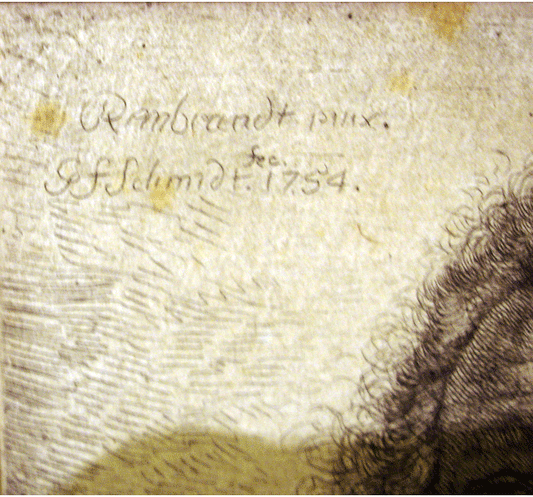 Rembrandt pinx.
G f Schmidt. fec. 1754.